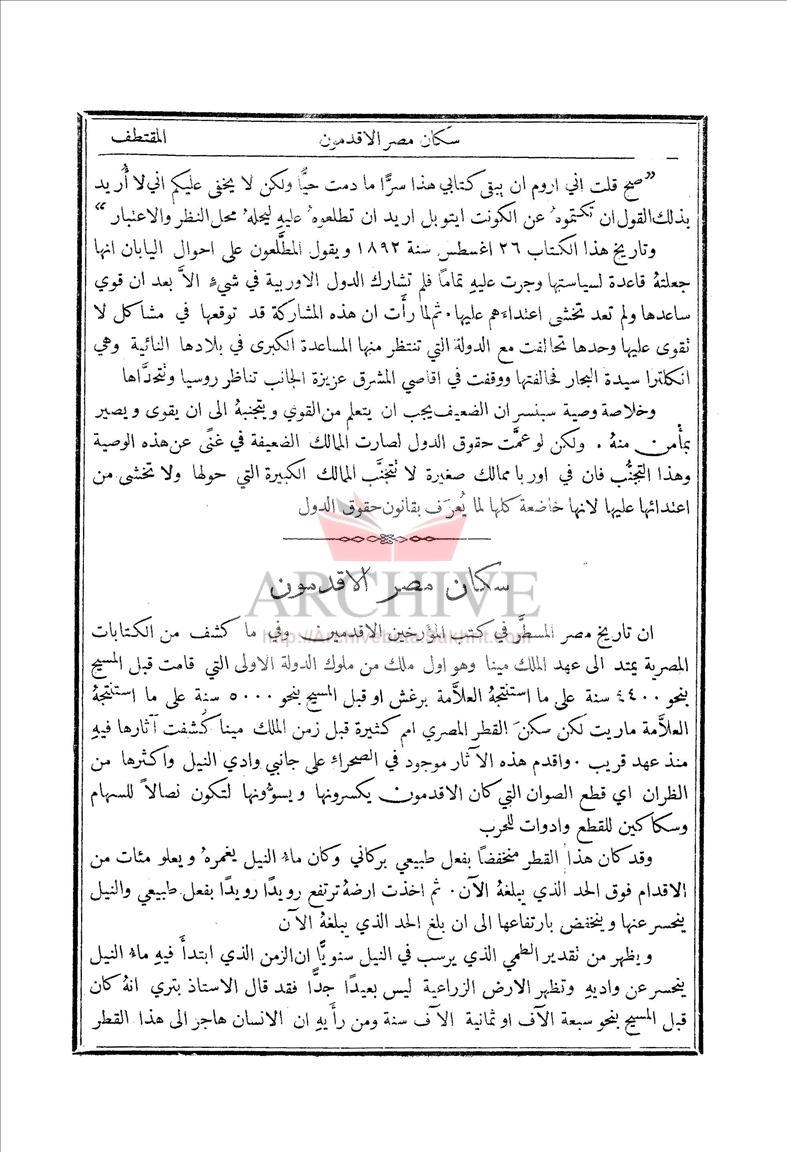 سكان مصر الاقدمون المقتطف
”صح قلت اني اروم ان يبقى كتابي هذا سرًّا ما دمت حيًّا ولكن لا يخفى عليكم اني لا أُريد
بذلك القول ان تكتموهُ عن الكونت ايتو بل اريد ان تطلعوهُ عليهِ ليحلهُ محل النظر والاعتبار“
وتاريخ هذا الكتاب ٢٦ اغسطس سنة ١٨٩٢ ويقول المطَّلعون على احوال اليابان انها
جعلتهُ قاعدة لسياستها وجرت عليهِ تمامًا فلم تشارك الدول الاوربية في شيءٍ الاَّ بعد ان قوي
ساعدها ولم تعد تخشى اعتداءهم عليها. ثم لما رأَت ان هذه المشاركة قد توقعها في مشاكل لا
تقوى عليها وحدها تحالفت مع الدولة التي تنتظر منها المساعدة الكبرى في بلادها النائية وهي
انكلترا سيدة البحار فحالفتها ووقفت في اقاصي المشرق عزيزة الجانب تناظر روسيا وتتحدَّاها
وخلاصة وصية سبنسر ان الضعيف يجب ان يتعلم من القوي ويتجنبهُ الى ان يقوى ويصير
بمأْمن منهُ. ولكن لو عمَّت حقوق الدول لصارت الممالك الضعيفة في غنًى عن هذه الوصية
وهذا التجنُّب فان في اوربا ممالك صغيرة لا تتجنَّب الممالك الكبيرة التي حولها ولا تخشى من
اعتدائها عليها لانها خاضعة كلها لما يُعرَف بقانون حقوق الدول
ARCHIVE
سكان مصر الاقدمون
ان تاريخ مصر المسطَّر في كتب المؤرخين الاقدمين وفي ما كشف من الكتابات
المصرية يمتد الى عهد الملك مينا وهو اول ملك من ملوك الدولة الاولى التي قامت قبل المسيح
بنحو ٤٤٠٠ سنة على ما استنتجهُ العلاَّمة برغش او قبل المسيح بنحو ٥٠٠٠ سنة على ما استنتجهُ
العلاَّمة ماريت لكن سكنَ القطر المصري امم كثيرة قبل زمن الملك مينا كُشفت آثارها فيهِ
منذ عهد قريب. واقدم هذه الآثار موجود في الصحراء على جانبي وادي النيل واكثرها من
الظران اي قطع الصوان التي كان الاقدمون يكسرونها ويسوّونها لتكون نصالاً للسهام
وسكاكين للقطع وادوات للحرب
وقد كان هذا القطر منخفضًا بفعل طبيعي بركاني وكان ماءُ النيل يغمرهُ ويعلو مئات من
الاقدام فوق الحد الذي يبلغهُ الآن. ثم اخذت ارضهُ ترتفع رويدًا رويدًا بفعل طبيعي والنيل
ينحسر عنها وينخفض بارتفاعها الى ان بلغ الحد الذي يبلغهُ الآن
ويظهر من تقدير الطمي الذي يرسب في النيل سنويًّا ان الزمن الذي ابتدأَ فيهِ ماءُ النيل
ينحسر عن واديهِ وتظهر الارض الزراعية ليس بعيدًا جدًّا فقد قال الاستاذ بتري انهُ كان
قبل المسيح بنحو سبعة الآف او ثمانية الآف سنة ومن رأَيهِ ان الانسان هاجر الى هذا القطر